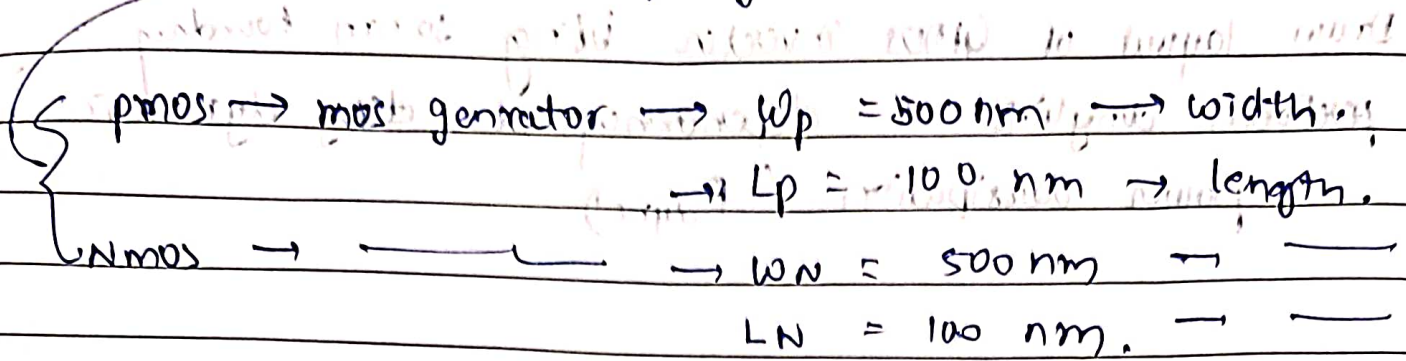 pmos → mos genrator → Wp = 500 nm → width.
→ Lp = 100 nm → length.
NMOS → —— → WN = 500 nm → ——
LN = 100 nm. → ——